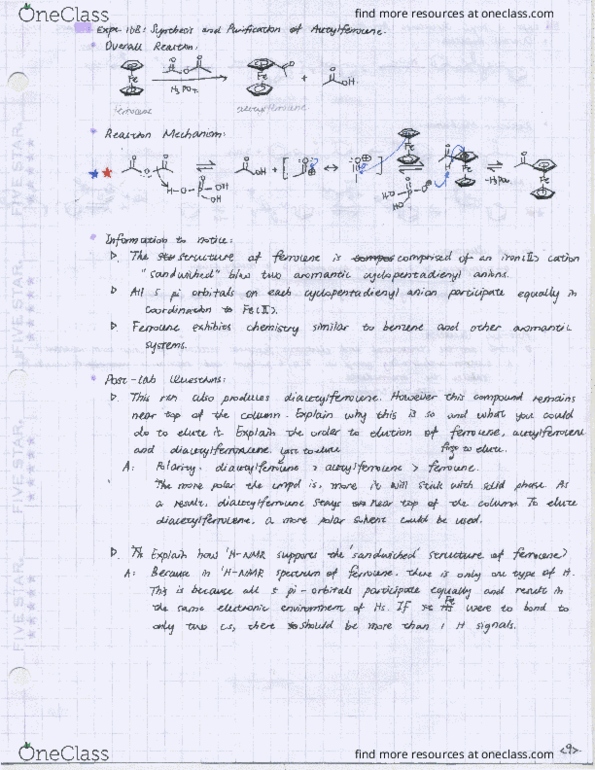 OneClass
find more resources at oneclass.com
Expt. 10B: Synthesis and Purification of Acetylferrocene.
Overall Reaction:
Fe
O
O
O
H3PO4
Fe
O
+
O
OH
ferrocene
acetylferrocene
Reaction Mechanism:
-H3PO4
Information to notice:
The structure of ferrocene is comprised of an iron(II) cation
"sandwiched" b/w two aromantic cyclopentadienyl anions.
All 5 pi orbitals on each cyclopentadienyl anion participate equally in
coordination to Fe(II).
Ferrocene exhibits chemistry similar to benzene and other aromantic
systems.
Post-lab Questions:
This rxn also produces diacetylferrocene. However this compound remains
near top of the column. Explain why this is so and what you could
do to elute it. Explain the order to elution of ferrocene, acetylferrocene
and diacetylferrocene. last to elute first to elute.
A: Polarity. diacetylferrocene > acetylferrocene > ferrocene.
The more polar the cmpd is, more it will stick with solid phase. As
a result, diacetylferrocene stays near top of the column. To elute
diacetylferrocene, a more polar solvent could be used.
Explain how 'H-NMR supports the 'sandwiched' structure of ferrocene?
A: Because in 'H-NMR spectrum of ferrocene. there is only one type of H.
This is because all 5 pi-orbitals participate equally and result in
the same electronic environment of Hs. If Fe were to bond to
only two Cs, there should be more than 1 H signals.
FIVE STAR.
FIVE STAR.
FIVE STAR.
FIVE STAR.
OneClass
find more resources at oneclass.com
<9>